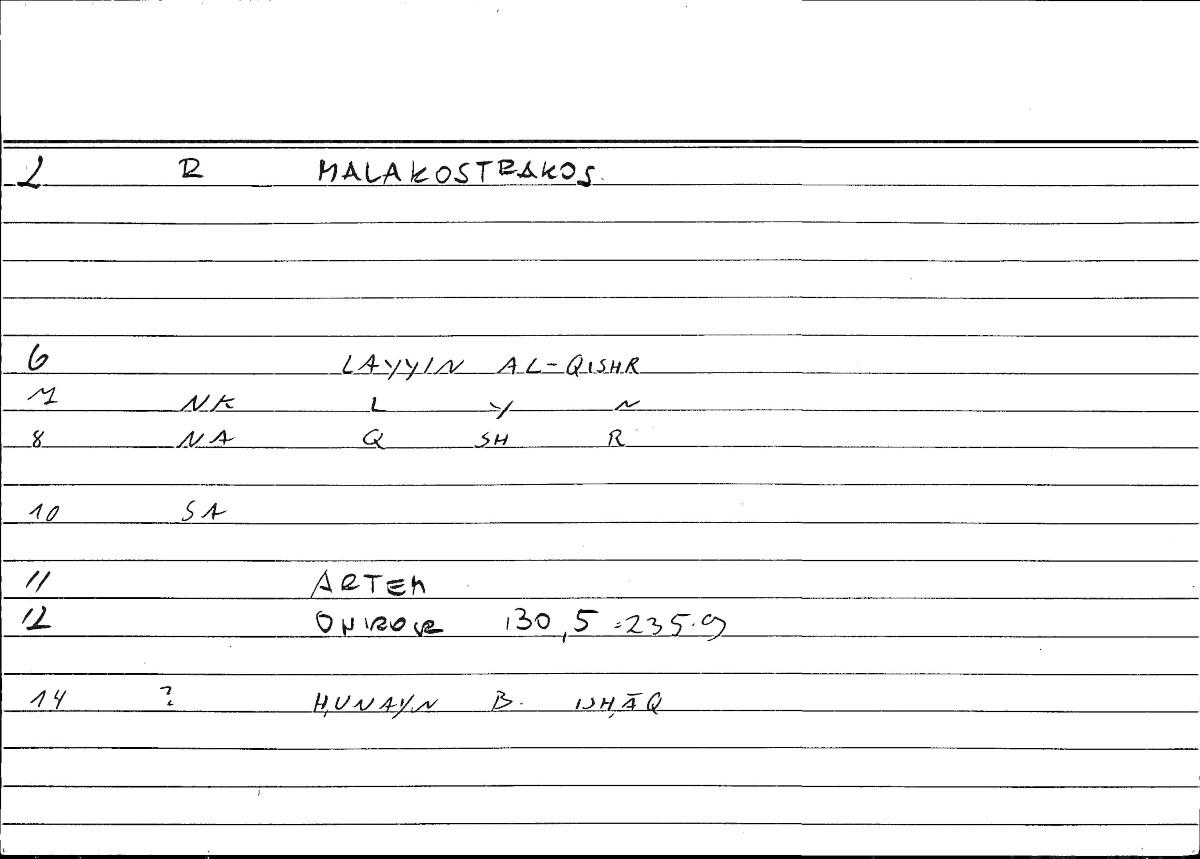 2 R MALAKOSTRAKOS.
6 LAYYIN AL-QISHR
7 NK L Y N
8 NA Q SH R
10 SA
11 ARTEM
12 ONIROKR 130,5 = 235.9
14 ? ḤUNAYN B. ISḤĀQ